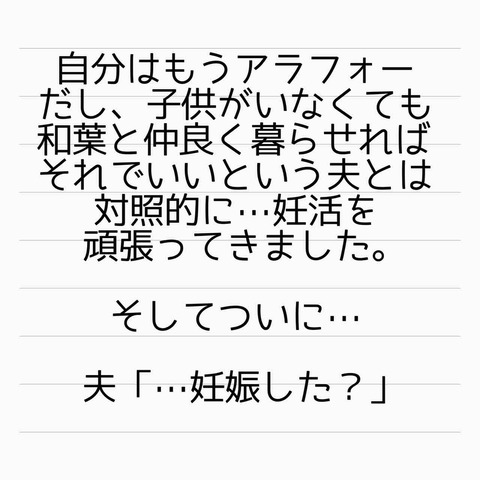 自分はもうアラフォー
だし、子供がいなくても
和葉と仲良く暮らせれば
それでいいという夫とは
対照的に…妊活を
頑張ってきました。
そしてついに…
夫「…妊娠した？」